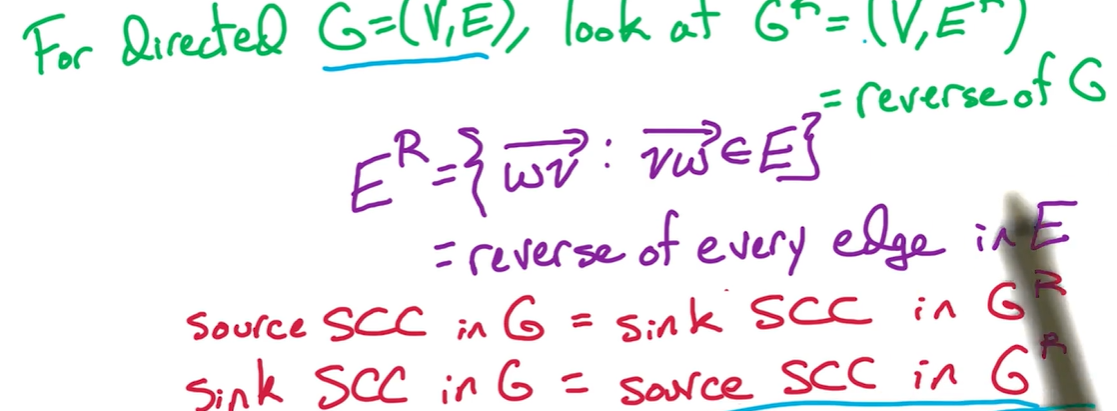 For directed G=(V,E), look at Gᴿ = (V,Eᴿ)
= reverse of G
Eᴿ={ →wv : →vw ∈ E}
= reverse of every edge in E
source SCC in G = sink SCC in Gᴿ
sink SCC in G = source SCC in Gᴿ